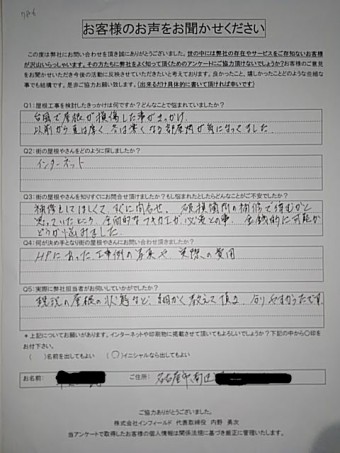 お客様のお声をお聞かせください
この度は弊社にお問い合わせを頂き誠にありがとうございました。世の中には弊社の存在やサービスをご存知ないお客様
が沢山いらっしゃいます。その方たちも弊社をよく知って頂くためのアンケートにご協力頂けないでしょうか?お客様のご意見
をお聞かせいただき今後の活動に反映させていただきたいと考えております。良かったこと、嬉しかったことどのような些細な
事でも結構です。是非ご協力お願い致します。(出来るだけ具体的に書いて頂ければ幸いです)
Q1:屋根工事を検討したきっかけは何ですか?どんなことで悩まれていましたか?
台風で屋根が損傷した事がきっかけ。
以前から夏は暑く、冬は寒くなる部屋が気になってました。
Q2:街の屋根やさんをどのように探しましたか?
インターネット
Q3:街の屋根やさんを知りすぐにお問合せ頂けましたか?もし悩まれたとしたらどんなことがご不安でしたか?
補修をしてほしくて、すぐに問合せ。破損箇所の補修で済むかと
思っていたところ、全面的なフキカエが必要との事、金銭的に可能か
どうか悩みました
Q4:何が決め手となり街の屋根やさんにお問い合わせ頂けましたか?
HPにあった工事例の写真や実際の費用
Q5:実際に弊社担当者がお伺いしていかがでしたか?
現況の屋根の状態など、細かく教えて頂き、
*上記についてお願いがあります。インターネットや印刷物に掲載させて頂いてもよろしいでしょうか?下記の中から○印を
お付下さい。
( )名前を出してもよい (○)イニシャルなら出してもよい
お名前:
ご住所: 名古屋市南区
ご協力ありがとうございました。
株式会社インフィールド 代表取締役 内野 勇次
当アンケートで取得したお客様の個人情報は関係法規に基づき厳正に管理いたします。